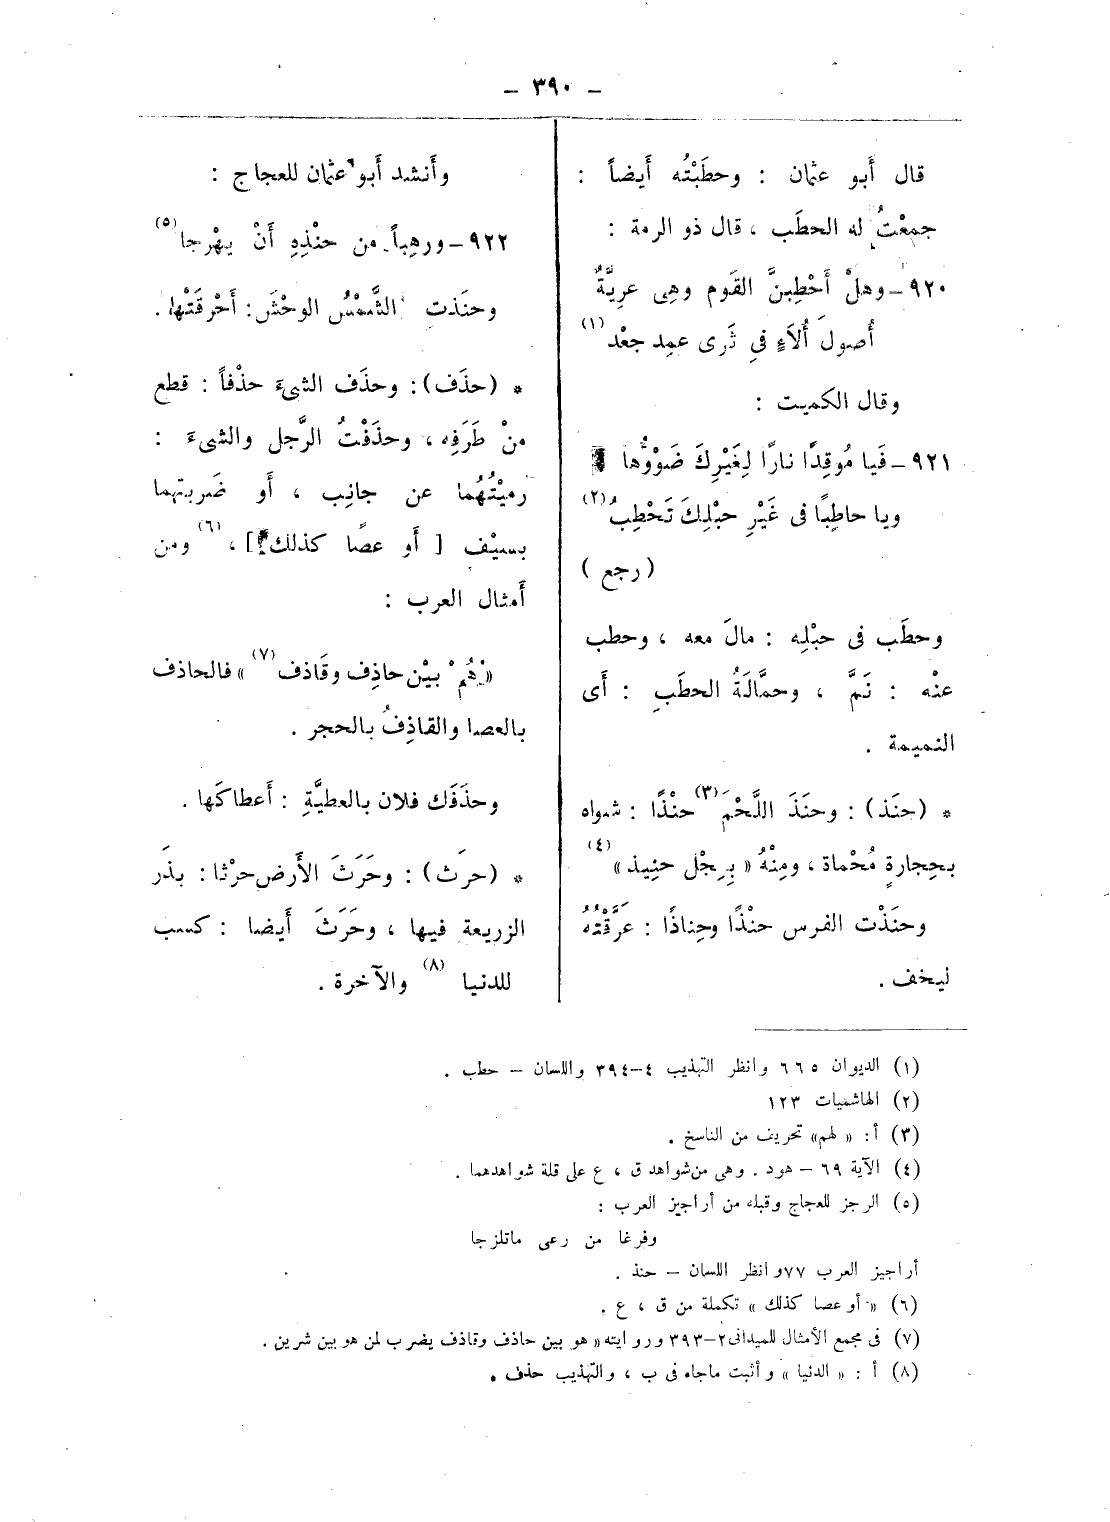 – ٣٩٠ –
قال أَبو عثمان : وحطَبْتُه أَيضاً :
جمعْتُ له الحطَب ، قال ذو الرمة :
٩٢٠–وهلْ أَحْطِبنَّ القَوم وهى عرِيَّةٌ
أُصولَ أُلاَءٍ فى ثَرى عمِد جعْد (١)
وقال الكميت :
٩٢١–فَيا مُوقِدًا نارًا لِغَيْرِكَ ضَوْوُها
ويا حاطِبًا فى غَيْرِ حبْلِكَ تَحْطِبُ (٢)
( رجع )
وحطَب فى حبْلِه : مالَ معه ، وحطب
عنْه : نَمَّ ، وحمَّالَةُ الحطَبِ : أَى
النميمة .
* (حنَذ) : وحنَذَ اللَّحْمَ (٣) حنْذًا : شواه
بحِجارةٍ مُحْماة ، ومِنْهُ « بِعِجْل حنِيذ » (٤)
وحنَذْت الفرس حنْذًا وحِناذًا : عرَّقْتهُ
ليخف .
وأَنشد أَبو عثمان للعجاج :
٩٢٢–ورهباً من حنْذِهِ أَنْ يهْرجا (٥)
وحنَذت الشَّمْسُ الوحْشَ : أَحْرقَتْها .
* (حذَف) : وحذَف الشىءَ حذْفاً : قطع
منْ طَرَفِه ، وحذَفْتُ الرَّجل والشىءَ :
رميْتُهُما عن جانِب ، أَو ضَربتهما
بسيْف [ أَو عصًا كذلك ] ، (٦) ومن
أَمثال العرب :
« هُمْ بيْن حاذِف وقَاذف (٧) » فالحاذف
بالعصا والقاذِفُ بالحجر .
وحذَفَك فلان بالعطيَّةِ : أَعطاكَها .
* (حرَث) : وحَرَثَ الأَرض حرْثا : بذَر
الزريعة فيها ، وحَرَثَ أَيضا : كسب
للدنيا (٨) والآخرة .
(١) الديوان ٦٦٥ وانظر التهذيب ٤–٣٩٤ واللسان – حطب .
(٢) الهاشميات ١٢٣
(٣) أ : « لهم» تحريف من الناسخ .
(٤) الآية ٦٩ – هود . وهى من شواهد ق ، ع على قلة شواهدهما .
(٥) الرجز للعجاج وقبله من أراجيز العرب :
وفرغا من رعى ماتلزجا
أراجيز العرب ٧٧ وانظر اللسان – حنذ .
(٦) « أو عصا كذلك » تكملة من ق ، ع .
(٧) فى مجمع الأمثال للميدانى ٢–٣٩٣ وروايته « هو بين حاذف وقاذف يضرب لمن هو بين شرين .
(٨) أ : « الدنيا » وأثبت ماجاء فى ب ، والتهذيب حذف .